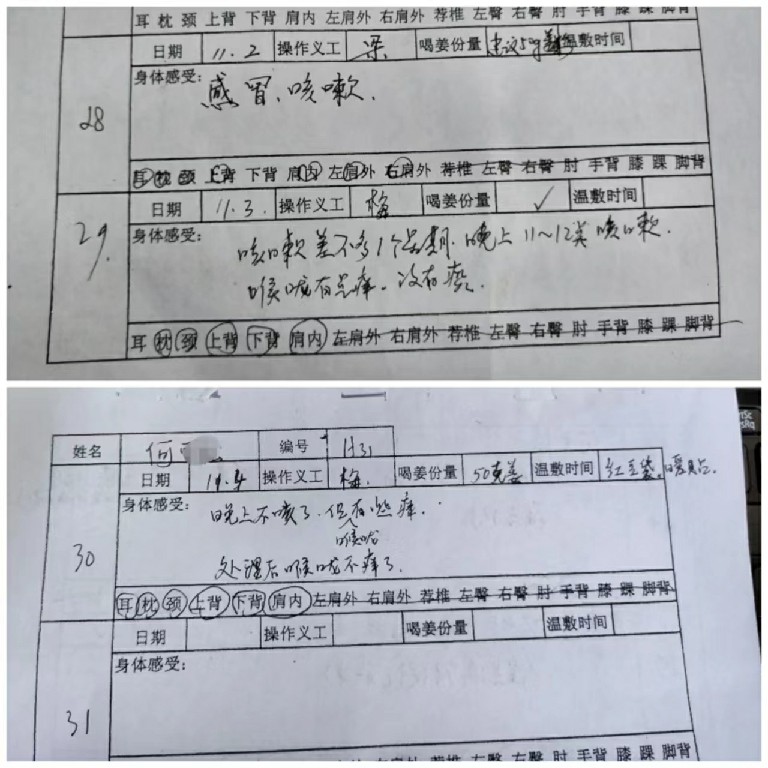 耳 枕 颈 上背 下背 肩内 左肩外 右肩外 荐椎 左臀 右臀 肘 手背 膝 踝 脚背
日期 11.2 操作义工 梁 喝姜份量 建议50g姜 温敷时间
28
身体感受:
感冒、咳嗽.
耳 枕 颈 上背 下背 肩内 左肩外 右肩外 荐椎 左臀 右臀 肘 手背 膝 踝 脚背
日期 11.3. 操作义工 梅 喝姜份量 ✓ 温敷时间
29.
身体感受:
咳嗽差不多1个星期.晚上11~12点咳嗽.
喉咙有点痒.没有痰.
耳 枕 颈 上背 下背 肩内 左肩外 右肩外 荐椎 左臀 右臀 肘 手背 膝 踝 脚背
姓名 何 编号 H31
日期 11.4 操作义工 梅. 喝姜份量 50克姜 温敷时间 红豆袋.
30
身体感受:
晚上不咳了.但有些痒.
喉咙
处理后喉咙不痒了.
耳 枕 颈 上背 下背 肩内 左肩外 右肩外 荐椎 左臀 右臀 肘 手背 膝 踝 脚背
日期 操作义工 喝姜份量 温敷时间
31
身体感受:
耳 枕 颈 上背 下背 肩内 左肩外 右肩外 荐椎 左臀 右臀 肘 手背 膝 踝 脚背